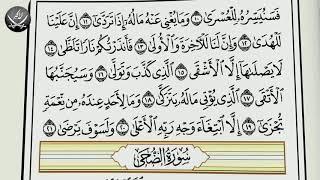 فَسَنُيَسِّرُهُۥ لِلْعُسْرَىٰ ١٠ وَمَا يُغْنِى عَنْهُ مَالُهُۥٓ إِذَا تَرَدَّىٰٓ ١١ إِنَّ عَلَيْنَا
لَلْهُدَىٰ ١٢ وَإِنَّ لَنَا لَلْءَاخِرَةَ وَٱلْأُولَىٰ ١٣ فَأَنذَرْتُكُمْ نَارًا تَلَظَّىٰ ١٤
لَا يَصْلَىٰهَآ إِلَّا ٱلْأَشْقَى ١٥ ٱلَّذِى كَذَّبَ وَتَوَلَّىٰ ١٦ وَسَيُجَنَّبُهَا
ٱلْأَتْقَى ١٧ ٱلَّذِى يُؤْتِى مَالَهُۥ يَتَزَكَّىٰ ١٨ وَمَا لِأَحَدٍ عِندَهُۥ مِن نِّعْمَةٍ
تُجْزَىٰٓ ١٩ إِلَّا ٱبْتِغَآءَ وَجْهِ رَبِّهِ ٱلْأَعْلَىٰ ٢٠ وَلَسَوْفَ يَرْضَىٰ ٢١
سُورَةُ ٱلضُّحَىٰ